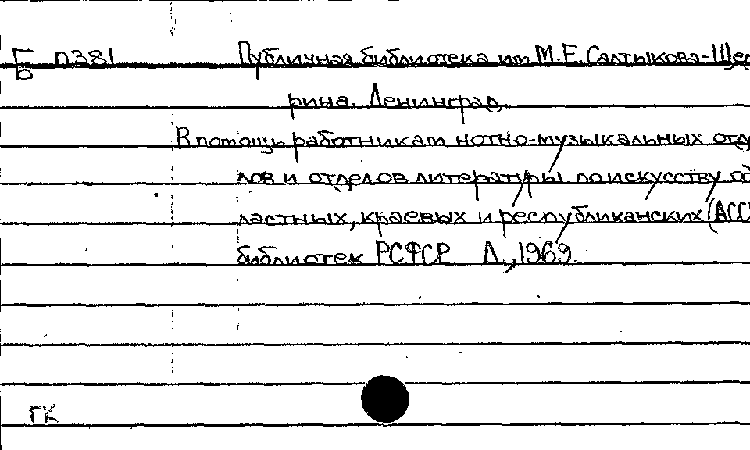 Б П381 Публичная библиотека им М.Е. Салтыкова-Щед
рина. Ленинград.
В помощь работникам нотно-музыкальных отде
лов и отделов литературы по искусству об
ластных, краевых и республиканских (АССР
библиотек РСФСР Л., 1969.
ГК